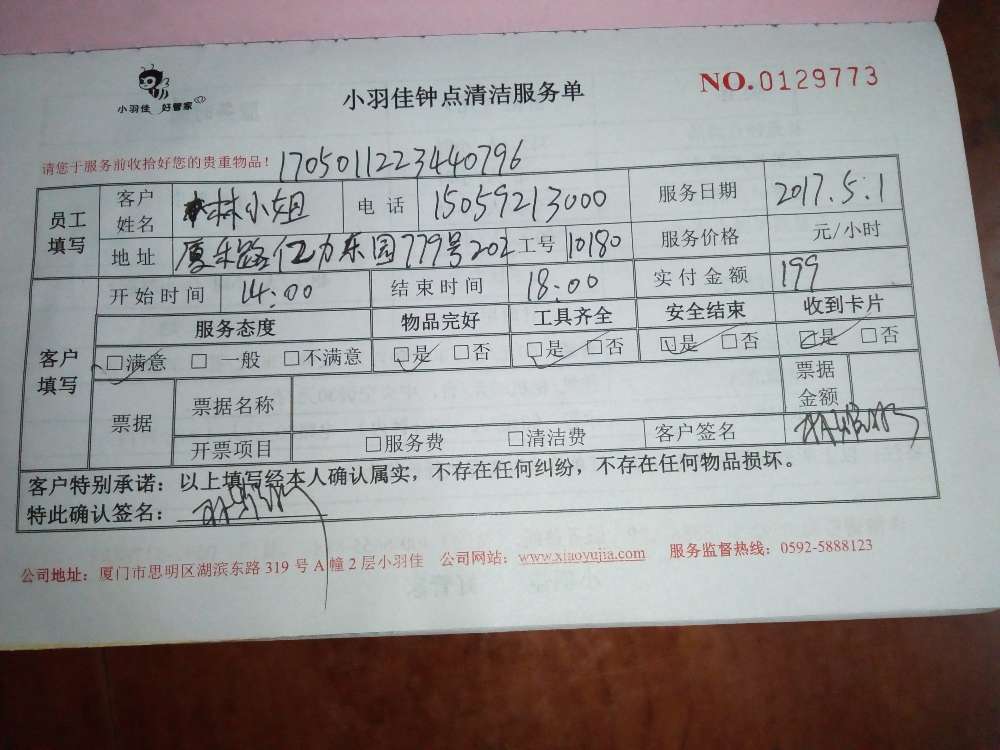 小羽佳 好管家
小羽佳钟点清洁服务单
NO.0129773
请您于服务前收拾好您的贵重物品！ 1705011223440796
员工填写 客户姓名 林小姐 电话 15059213000 服务日期 2017.5.1
地址 厦禾路亿力东园779号202 工号 10180 服务价格 元/小时
开始时间 14:00 结束时间 18:00 实付金额 199
客户填写 服务态度 物品完好 工具齐全 安全结束 收到卡片
□满意 □一般 □不满意 □是 □否 □是 □否 □是 □否 □是 □否
票据 票据名称 票据金额
开票项目 □服务费 □清洁费 客户签名
客户特别承诺：以上填写经本人确认属实，不存在任何纠纷，不存在任何物品损坏。
特此确认签名：
公司地址：厦门市思明区湖滨东路 319 号 A 幢 2 层小羽佳 公司网站：www.xiaoyujia.com 服务监督热线：0592-5888123